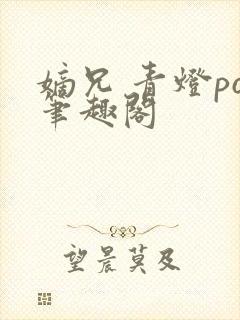 嫡兄 青燈po
筆趣閣
望晨莫及